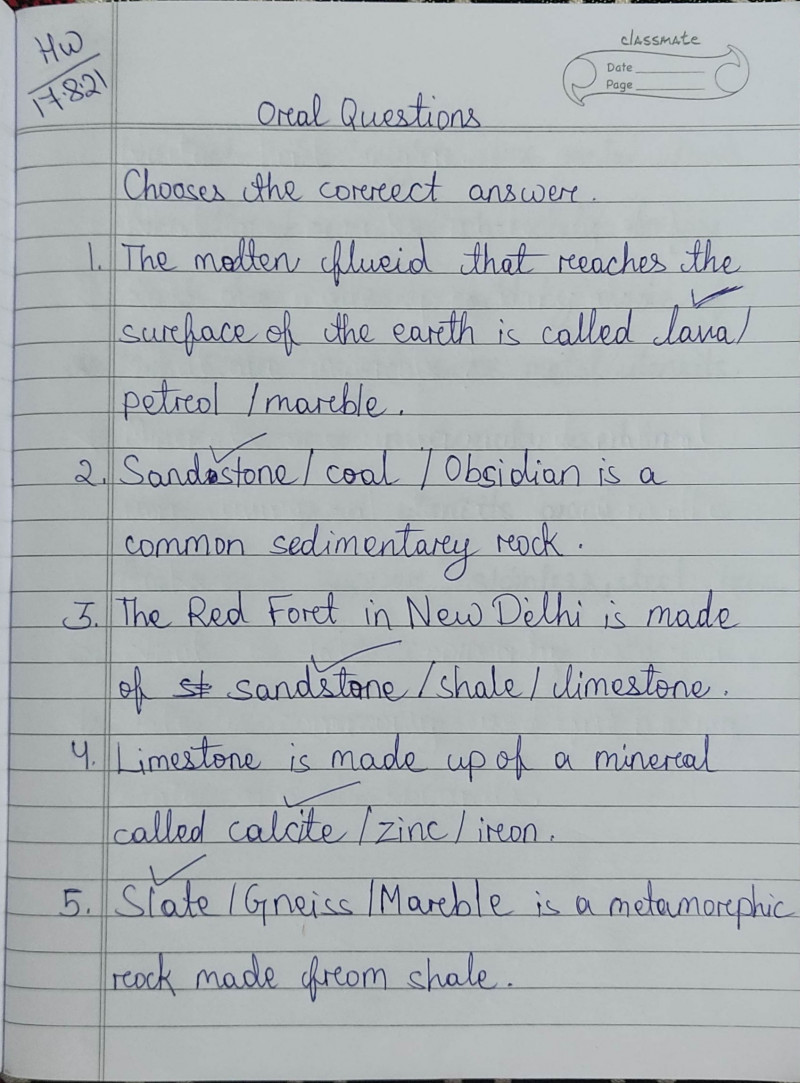 HW
17.8.21
classmate
Date
Page
Oral Questions
Chooses the correct answer.
1. The molten fluid that reaches the
surface of the earth is called lava/
petrol / marble.
2. Sandstone / coal / Obsidian is a
common sedimentary rock.
3. The Red Fort in New Delhi is made
of st sandstone / shale / limestone.
4. Limestone is made up of a mineral
called calcite / zinc / iron.
5. Slate / Gneiss / Marble is a metamorphic
rock made from shale.